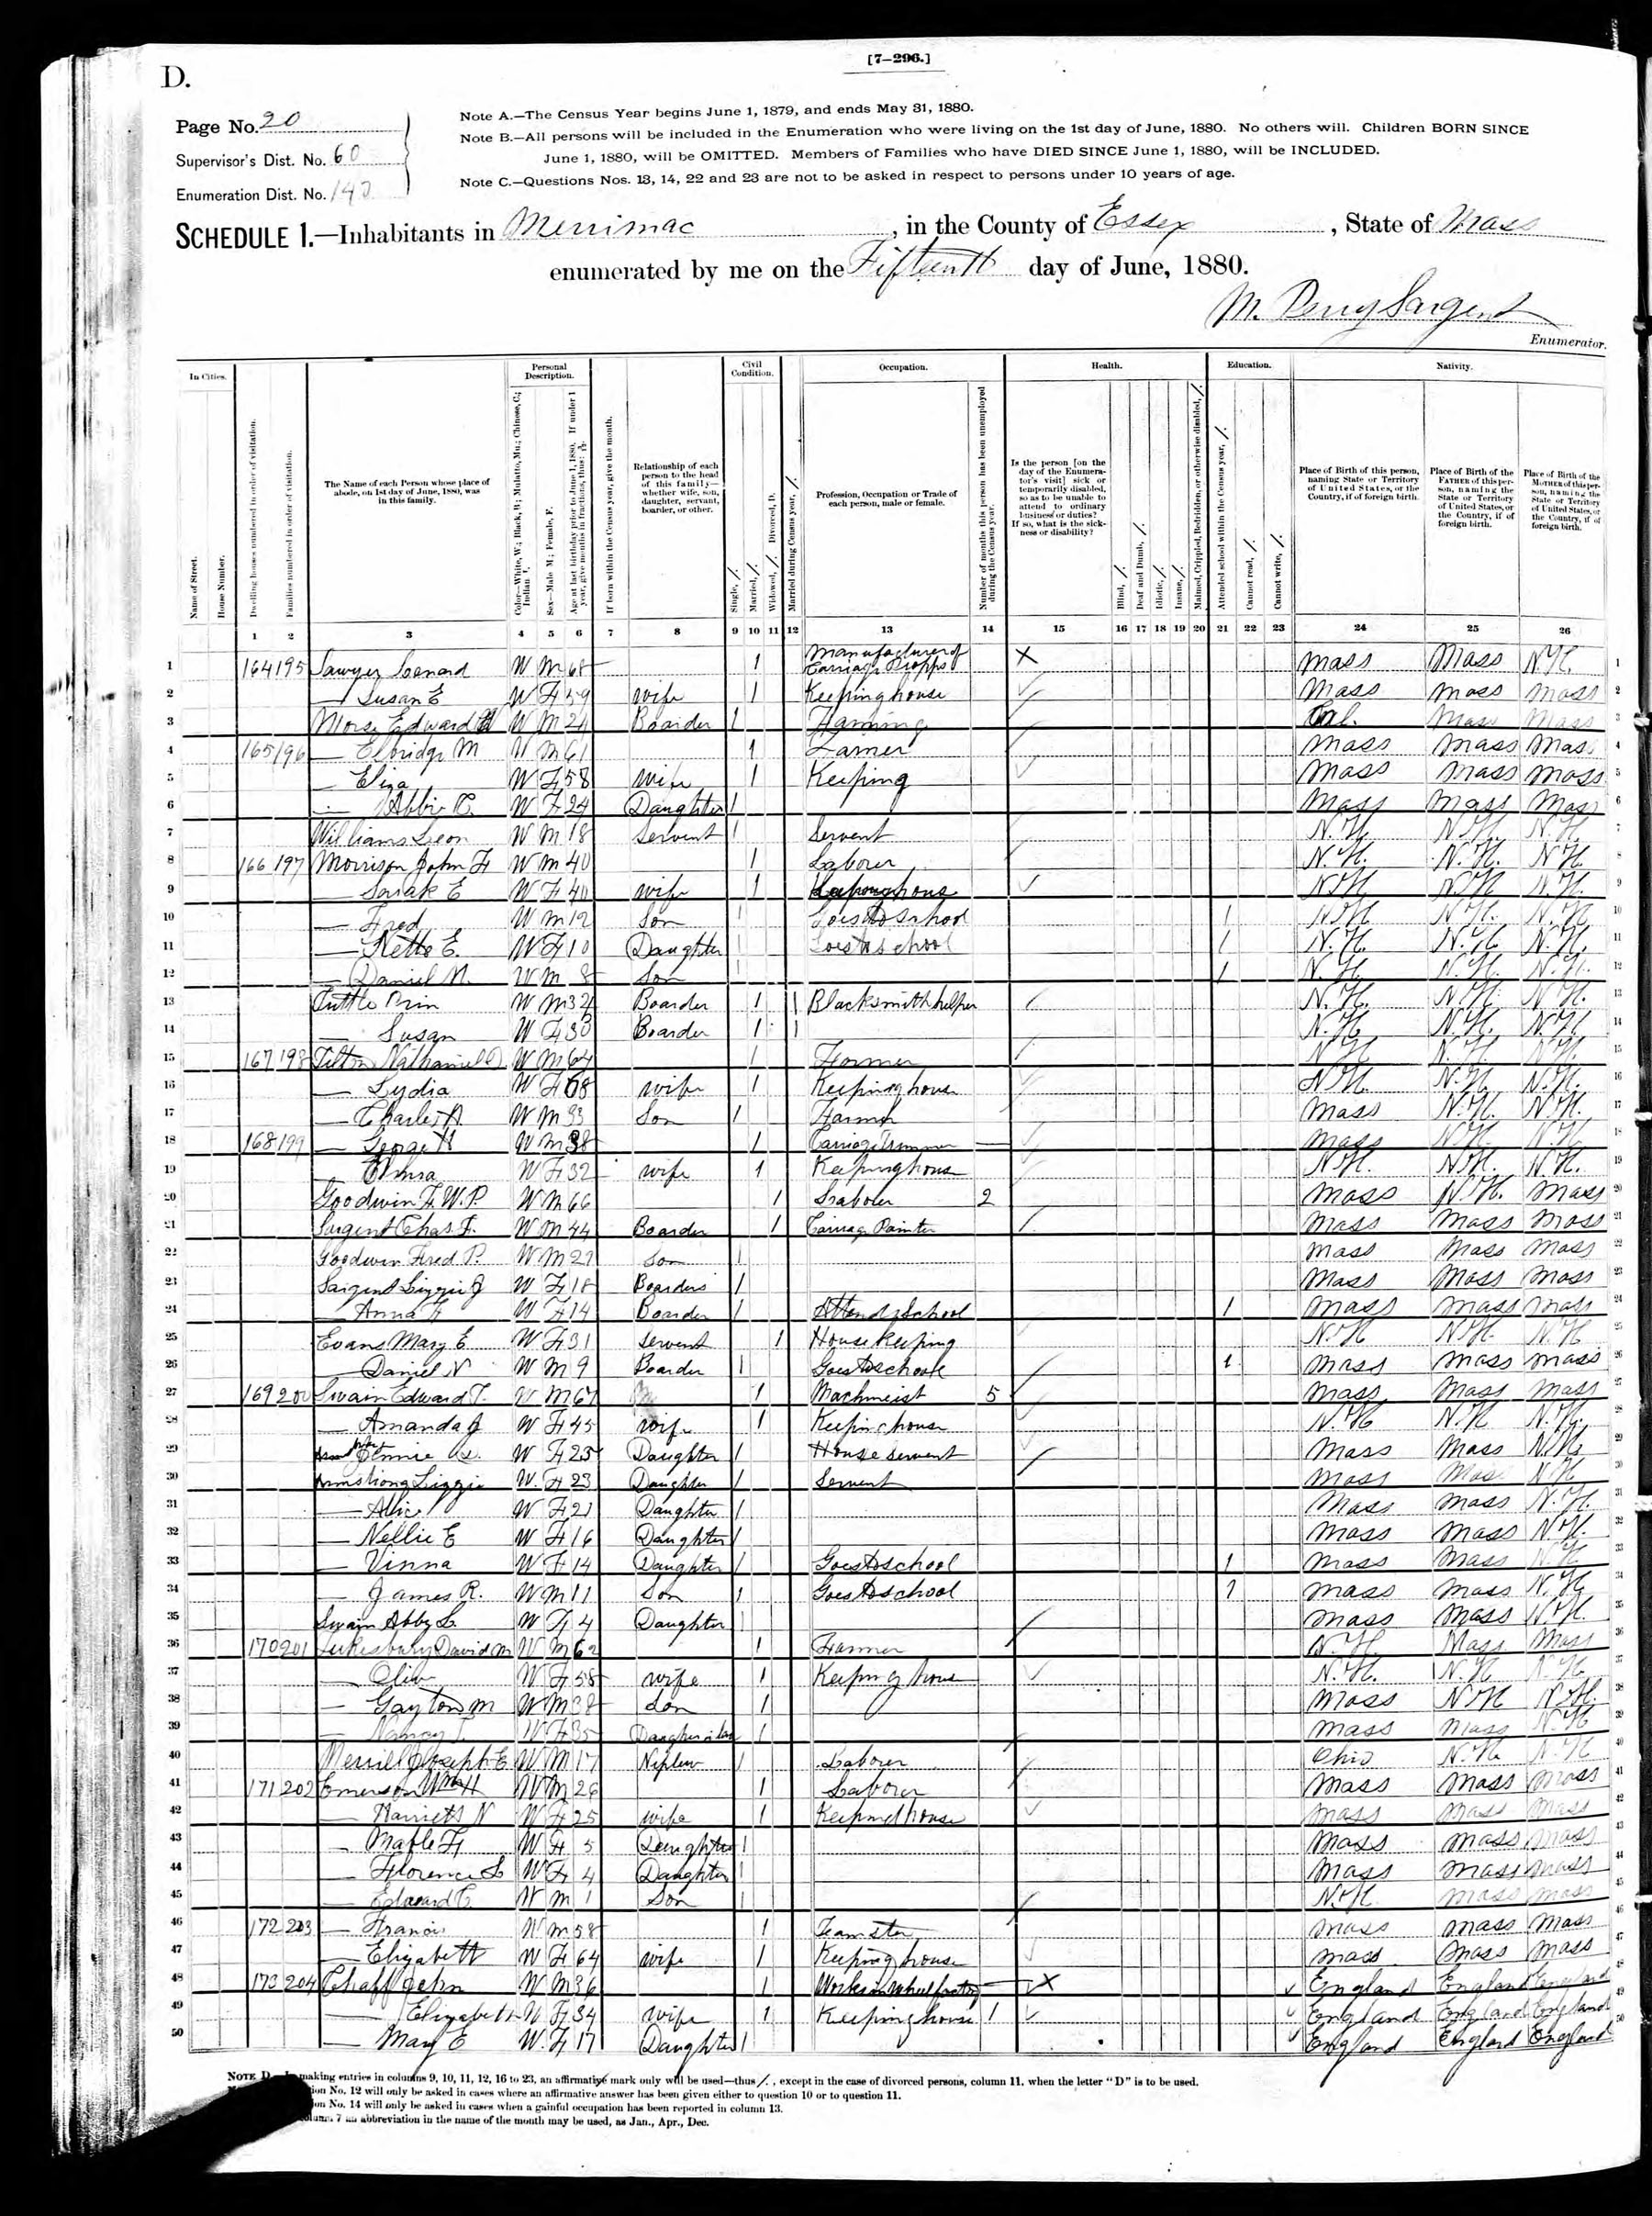 [7–296.]
D.
Page No. 20
Supervisor's Dist. No. 60
Enumeration Dist. No.
Note A.—The Census Year begins June 1, 1879, and ends May 31, 1880.
Note B.—All persons will be included in the Enumeration who were living on the 1st day of June, 1880. No others will. Children BORN SINCE
June 1, 1880, will be OMITTED. Members of Families who have DIED SINCE June 1, 1880, will be INCLUDED.
Note C.—Questions Nos. 13, 14, 22 and 23 are not to be asked in respect to persons under 10 years of age.
SCHEDULE 1.—Inhabitants in Merrimac, in the County of Essex, State of Mass
enumerated by me on the Fifteenth day of June, 1880.
M. Perry Sargent
Enumerator.
In Cities. Personal Description. Civil Condition. Occupation. Health. Education. Nativity.
Name of Street.
House Number.
Dwelling houses numbered in order of visitation.
Families numbered in order of visitation.
The Name of each Person whose place of abode, on 1st day of June, 1880, was in this family.
Color—White, W.; Black, B.; Mulatto, Mu.; Chinese, C.; Indian, I.
Sex—Male M.; Female, F.
Age at last birthday prior to June 1, 1880. If under 1 year, give months in fractions, thus:
If born within the Census year, give the month.
Relationship of each person to the head of this family—whether wife, son, daughter, servant, boarder, or other.
Single, /.
Married, /.
Widowed, /. Divorced, D.
Married during Census year, /.
Profession, Occupation or Trade of each person, male or female.
Number of months this person has been unemployed during the Census year.
Is the person [on the day of the Enumerator's visit] sick or temporarily disabled, so as to be unable to attend to ordinary business or duties? If so, what is the sickness or disability?
Blind, /.
Deaf and Dumb, /.
Idiotic, /.
Insane, /.
Maimed, Crippled, Bedridden, or otherwise disabled, /.
Attended school within the Census year, /.
Cannot read, /.
Cannot write, /.
Place of Birth of this person, naming State or Territory of United States, or the Country, if of foreign birth.
Place of Birth of the FATHER of this person, naming the State or Territory of United States, or the Country, if of foreign birth.
Place of Birth of the MOTHER of this person, naming the State or Territory of United States, or the Country, if of foreign birth.
1 2 3 4 5 6 7 8 9 10 11 12 13 14 15 16 17 18 19 20 21 22 23 24 25 26
1 164 195 Sawyer Lenard W M 68 1 Manufacturer of Carriage X Mass Mass N.H. 1
2 — Susan E W F 59 wife 1 Keeping house Mass Mass Mass 2
3 Morse Edward W M 21 Boarder 1 Mass Mass 3
4 165 196 — Elbridge M W M 61 1 Mass Mass Mas 4
5 — Eliza W F 58 wife 1 Keeping Mass Mass Mass 5
6 — Abbie W F 24 Daughter 1 Mass Mass Mass 6
7 Williams Leon W M 18 Servent 1 Servent N.H. N.H. N.H. 7
8 166 197 Morrison John F W M 40 1 Labour N.H. N.H. N.H. 8
9 — Sarah E W F 40 wife 1 Keeping house N.H. N.H. N.H. 9
10 — Fred W M 12 Son 1 Goes to School 1 N.H. N.H. N.H. 10
11 — Nettie E. W F 10 Daughter 1 Goes to school 1 N.H. N.H. N.H. 11
12 — Daniel W M 8 Son 1 1 N.H. N.H. N.H. 12
13 Tuttle Orin W M 32 Boarder 1 1 Blacksmith helper N.H. N.H. N.H. 13
14 — Susan W F 30 Boarder 1 1 N.H. N.H. N.H. 14
15 167 198 Tilton Nathaniel W M 64 1 Farmer N.H. N.H. N.H. 15
16 — Lydia W F 68 wife 1 Keeping house N.H. N.H. N.H. 16
17 — Charles A. W M 33 Son 1 Farmer Mass N.H. N.H. 17
18 168 199 — George H W M 38 1 Carriage Trimmer Mass N.H. N.H. 18
19 — W F 32 wife 1 Keeping house N.H. N.H. N.H. 19
20 Goodwin F. W. P. W M 66 1 Labour 2 Mass N.H. Mass 20
21 Sargent Chas. F. W M 44 Boarder 1 Carriage Painter Mass Mass Mass 21
22 Goodwin Fred P. W M 27 Son 1 Mass Mass Mass 22
23 Sargent Lizzie J W F 18 Boarder 1 Mass Mass Mass 23
24 — Anna F W F 14 Boarder 1 Attends School 1 Mass Mass Mass 24
25 Evans Mary E W F 31 Servent 1 House Keeping N.H. N.H. N.H. 25
26 — Daniel N W M 9 Boarder 1 Goes to school 1 Mass Mass Mass 26
27 169 200 Swain Edward T. W M 67 1 Machineist 5 Mass Mass Mass 27
28 — Amanda J W F 45 wife 1 Keeping house N.H. N.H. N.H. 28
29 Jennie W F 25 Daughter 1 House servent Mass Mass N.H. 29
30 Armstrong Lizzie W. F 23 Daughter 1 Servent Mass Mass N.H. 30
31 — Alice W F 21 Daughter 1 Mass Mass N.H. 31
32 — Nellie E W F 16 Daughter 1 Mass Mass N.H. 32
33 — Vinna W F 14 Daughter 1 Goes to school 1 Mass Mass N.H. 33
34 — James R. W M 11 Son 1 Goes to school 1 Mass Mass N.H. 34
35 Swain Abby L. W F 4 Daughter 1 Mass Mass N.H. 35
36 170 201 Tukesbury David M W M 62 1 Farmer N.H. Mass Mass 36
37 — Oliv W F 58 wife 1 Keeping house N.H. N.H. N.H. 37
38 — Gayton M W M 38 Son 1 Mass N.H. N.H. 38
39 — Nancy W F 35 Daughter in law 1 Mass Mass N.H. 39
40 Merrill Joseph E W M 17 Nephew 1 Labourer Ohio N.H. N.H. 40
41 171 202 Emerson Wm H W M 26 1 Labourer Mass Mass Mass 41
42 — Harriett N W F 25 wife 1 Keeping house Mass Mass Mass 42
43 — Mable F W F 5 Daughter 1 Mass Mass Mass 43
44 — Florence L W F 4 Daughter 1 Mass Mass Mass 44
45 — Edward W M 1 Son 1 N.H. Mass Mass 45
46 172 203 — Francis W M 58 1 Teamster Mass Mass Mass 46
47 — Elizabeth W F 64 wife 1 Keeping house Mass Mass Mass 47
48 173 204 Chaff John W M 36 1 Works in wheel factory X England England England 48
49 — Elizabeth W F 34 wife 1 Keeping house 1 England England England 49
50 — Mary E W. F 17 Daughter 1 England England England 50
NOTE D.—In making entries in columns 9, 10, 11, 12, 16 to 23, an affirmative mark only will be used—thus /., except in the case of divorced persons, column 11, when the letter "D" is to be used.
ion No. 12 will only be asked in cases where an affirmative answer has been given either to question 10 or to question 11.
on No. 14 will only be asked in cases when a gainful occupation has been reported in column 13.
column 7 an abbreviation in the name of the month may be used, as Jan., Apr., Dec.